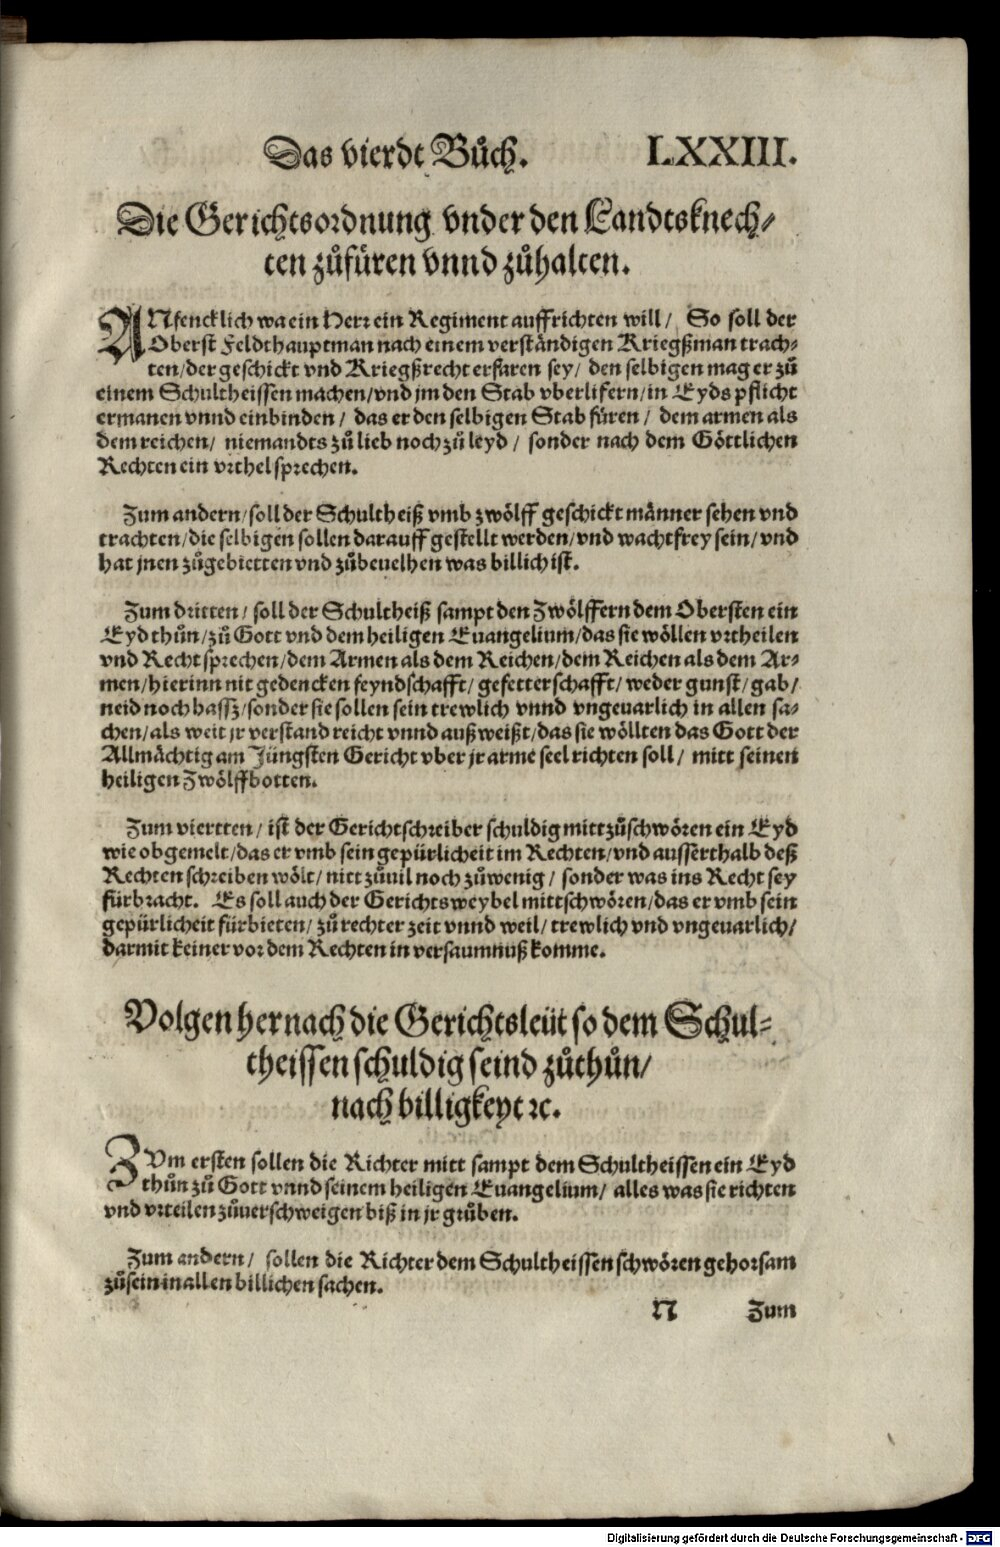 Das vierdt Bůch. LXXIII.
Die Gerichtsordnung vnder den Landtsknech-
ten zůfüren vnnd zůhalten.
ANfencklich wa ein Herr ein Regiment auffrichten will / So soll der
Oberst Feldthauptman nach einem verständigen Kriegßman trach-
ten / der geschickt vnd Kriegßrecht erfaren sey / den selbigen mag er zů
einem Schultheissen machen / vnd jm den Stab vberlifern / in Eyds pflicht
ermanen vnnd einbinden / das er den selbigen Stab füren / dem armen als
dem reichen / niemandts zů lieb noch zů leyd / sonder nach dem Göttlichen
Rechten ein vrthel sprechen.
Zum andern / soll der Schultheiß vmb zwölff geschickt männer sehen vnd
trachten / die selbigen sollen darauff gestellt werden / vnd wachtfrey sein / vnd
hat jnen zůgebietten vnd zůbeuelhen was billich ist.
Zum dritten / soll der Schultheiß sampt den Zwölffern dem Obersten ein
Eyd thůn / zů Gott vnd dem heiligen Euangelium / das sie wöllen vrtheilen
vnd Recht sprechen / dem Armen als dem Reichen / dem Reichen als dem Ar-
men / hierinn nit gedencken feyndschafft / gefetterschafft / weder gunst / gab /
neid noch hassz / sonder sie sollen sein trewlich vnnd vngeuarlich in allen sa-
chen / als weit jr verstand reicht vnnd außweißt / das sie wöllten das Gott der
Allmächtig am Jüngsten Gericht vber jr arme seel richten soll / mitt seinen
heiligen Zwölffbotten.
Zum viertten / ist der Gerichtschreiber schuldig mitt zůschwören ein Eyd
wie obgemelt / das er vmb sein gepürlicheit im Rechten / vnd ausserthalb deß
Rechten schreiben wölt / nitt zůuil noch zůwenig / sonder was ins Recht sey
fürbracht. Es soll auch der Gerichtsweybel mittschwören / das er vmb sein
gepürlicheit fürbieten / zů rechter zeit vnnd weil / trewlich vnd vngeuarlich /
darmit keiner vor dem Rechten in versaumnuß komme.
Volgen hernach die Gerichtsleüt so dem Schul-
theissen schuldig seind zůthůn /
nach billigkeyt ꝛc.
ZVm ersten sollen die Richter mitt sampt dem Schultheissen ein Eyd
thůn zů Gott vnnd seinem heiligen Euangelium / alles was sie richten
vnd vrteilen zůuerschweigen biß in jr grůben.
Zum andern / sollen die Richter dem Schultheissen schwören gehorsam
zůsein in allen billichen sachen.
N Zum
Digitalisierung gefördert durch die Deutsche Forschungsgemeinschaft - DFG